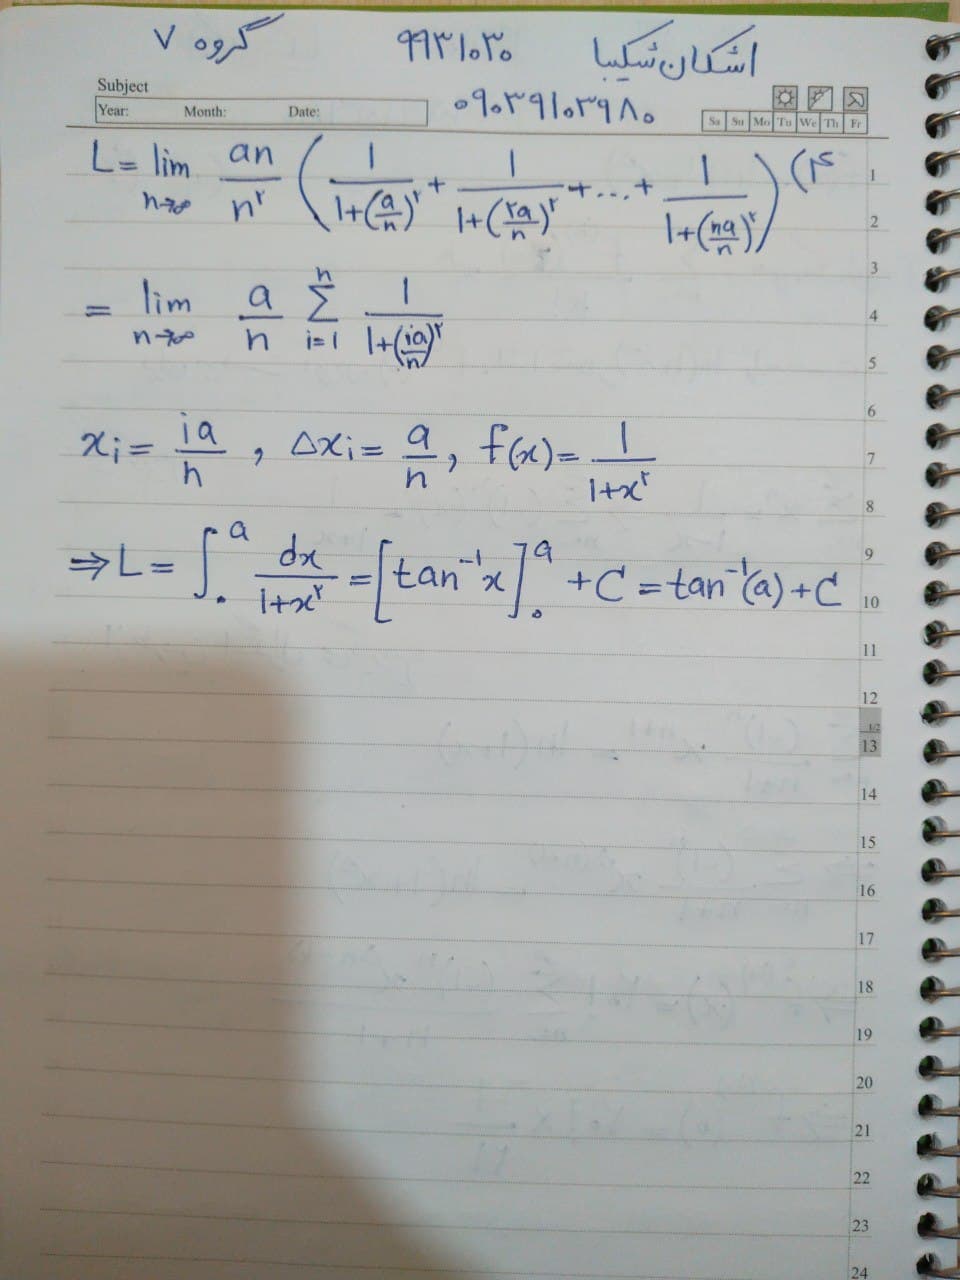 اشکان شکیبا ۹۹۳۱۰۳۰ گروه ۷
۰۹۰۳۹۱۰۳۹۸۰
Subject
Year: Month: Date:
Sa Su Mo Tu We Th Fr
۴) L = lim n→∞ an/n² ( 1/(1+(a/n)²) + 1/(1+(۲a/n)²) + ... + 1/(1+(na/n)²) )
= lim n→∞ a/n Σ i=1 n 1/(1+(ia/n)²)
xᵢ = ia/n , Δxᵢ = a/n , f(x) = 1/(1+x²)
⇒ L = ∫₀ᵃ dx/(1+x²) = [tan⁻¹x]₀ᵃ + C = tan⁻¹(a) + C
1
2
3
4
5
6
7
8
9
10
11
12
1/2
13
14
15
16
17
18
19
20
21
22
23
24